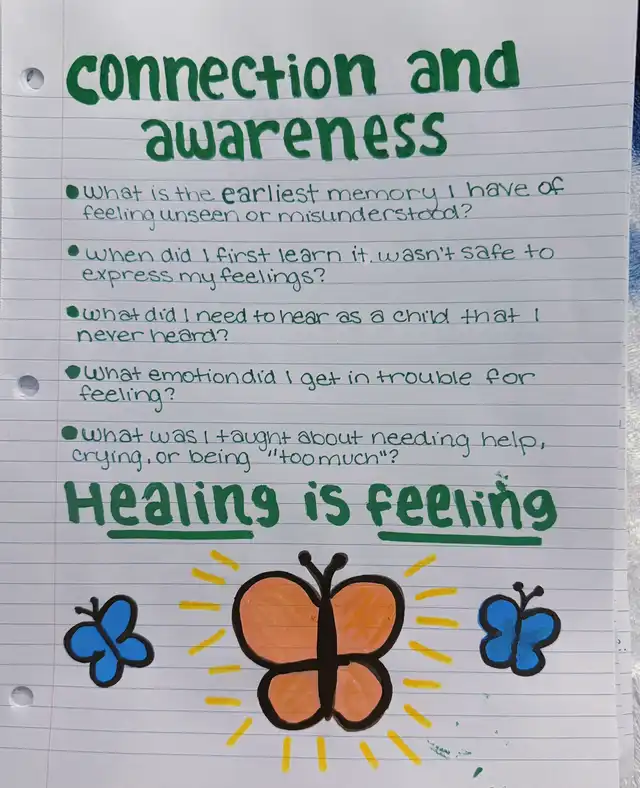 connection and
awareness
• What is the earliest memory I have of
feeling unseen or misunderstood?
• When did I first learn it wasn't safe to
express my feelings?
• What did I need to hear as a child that I
never heard?
• What emotion did I get in trouble for
feeling?
• What was I taught about needing help,
crying, or being "too much"?
Healing is feeling